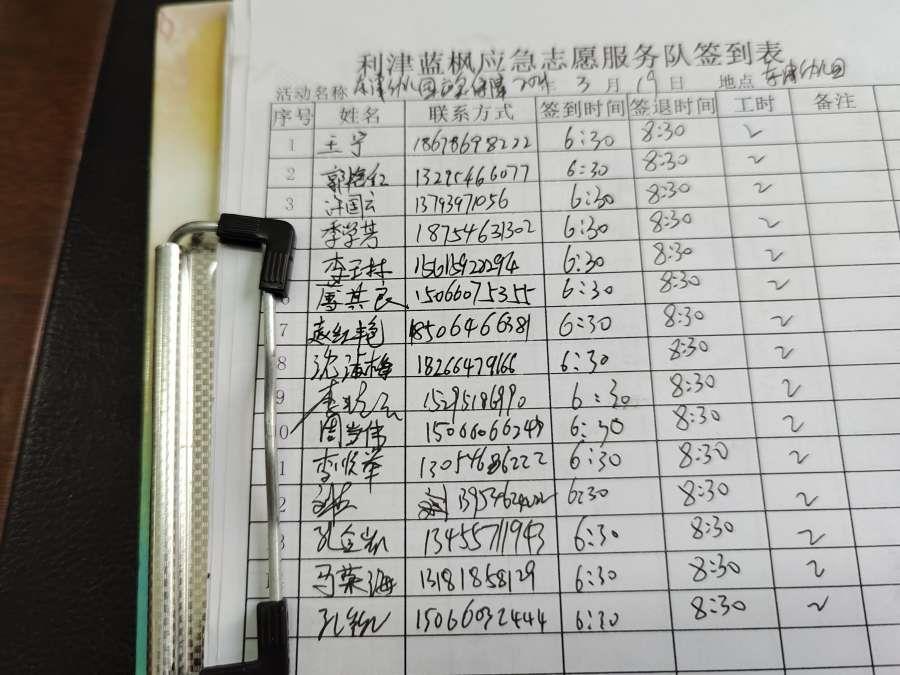 利津蓝枫应急志愿服务队签到表
活动名称 东津幼儿园应急保障 年 3 月 19 日 地点 东津幼儿园
序号 姓名 联系方式 签到时间 签退时间 工时 备注
1 王宇 18678698222 6:30 8:30 2
2 郭艳红 13295466077 6:30 8:30 2
3 许国云 13793971056 6:30 8:30 2
李学芳 18754631302 6:30 8:30 2
李玉林 6:30 8:30 2
15066075355 6:30 8:30 2
7 赵红艳 18506466381 6:30 8:30 2
8 沈海梅 18266479166 6:30 8:30 2
9 李 15295186990 6:30 8:30 2
0 周学伟 6:30 8:30 2
1 李悦华 13054686222 6:30 8:30 2
2 6:30 8:30 2
3 孔金岩 13455711943 6:30 8:30 2
马荣海 13181858129 6:30 8:30 2
孔 15066032444 6:30 8:30 2